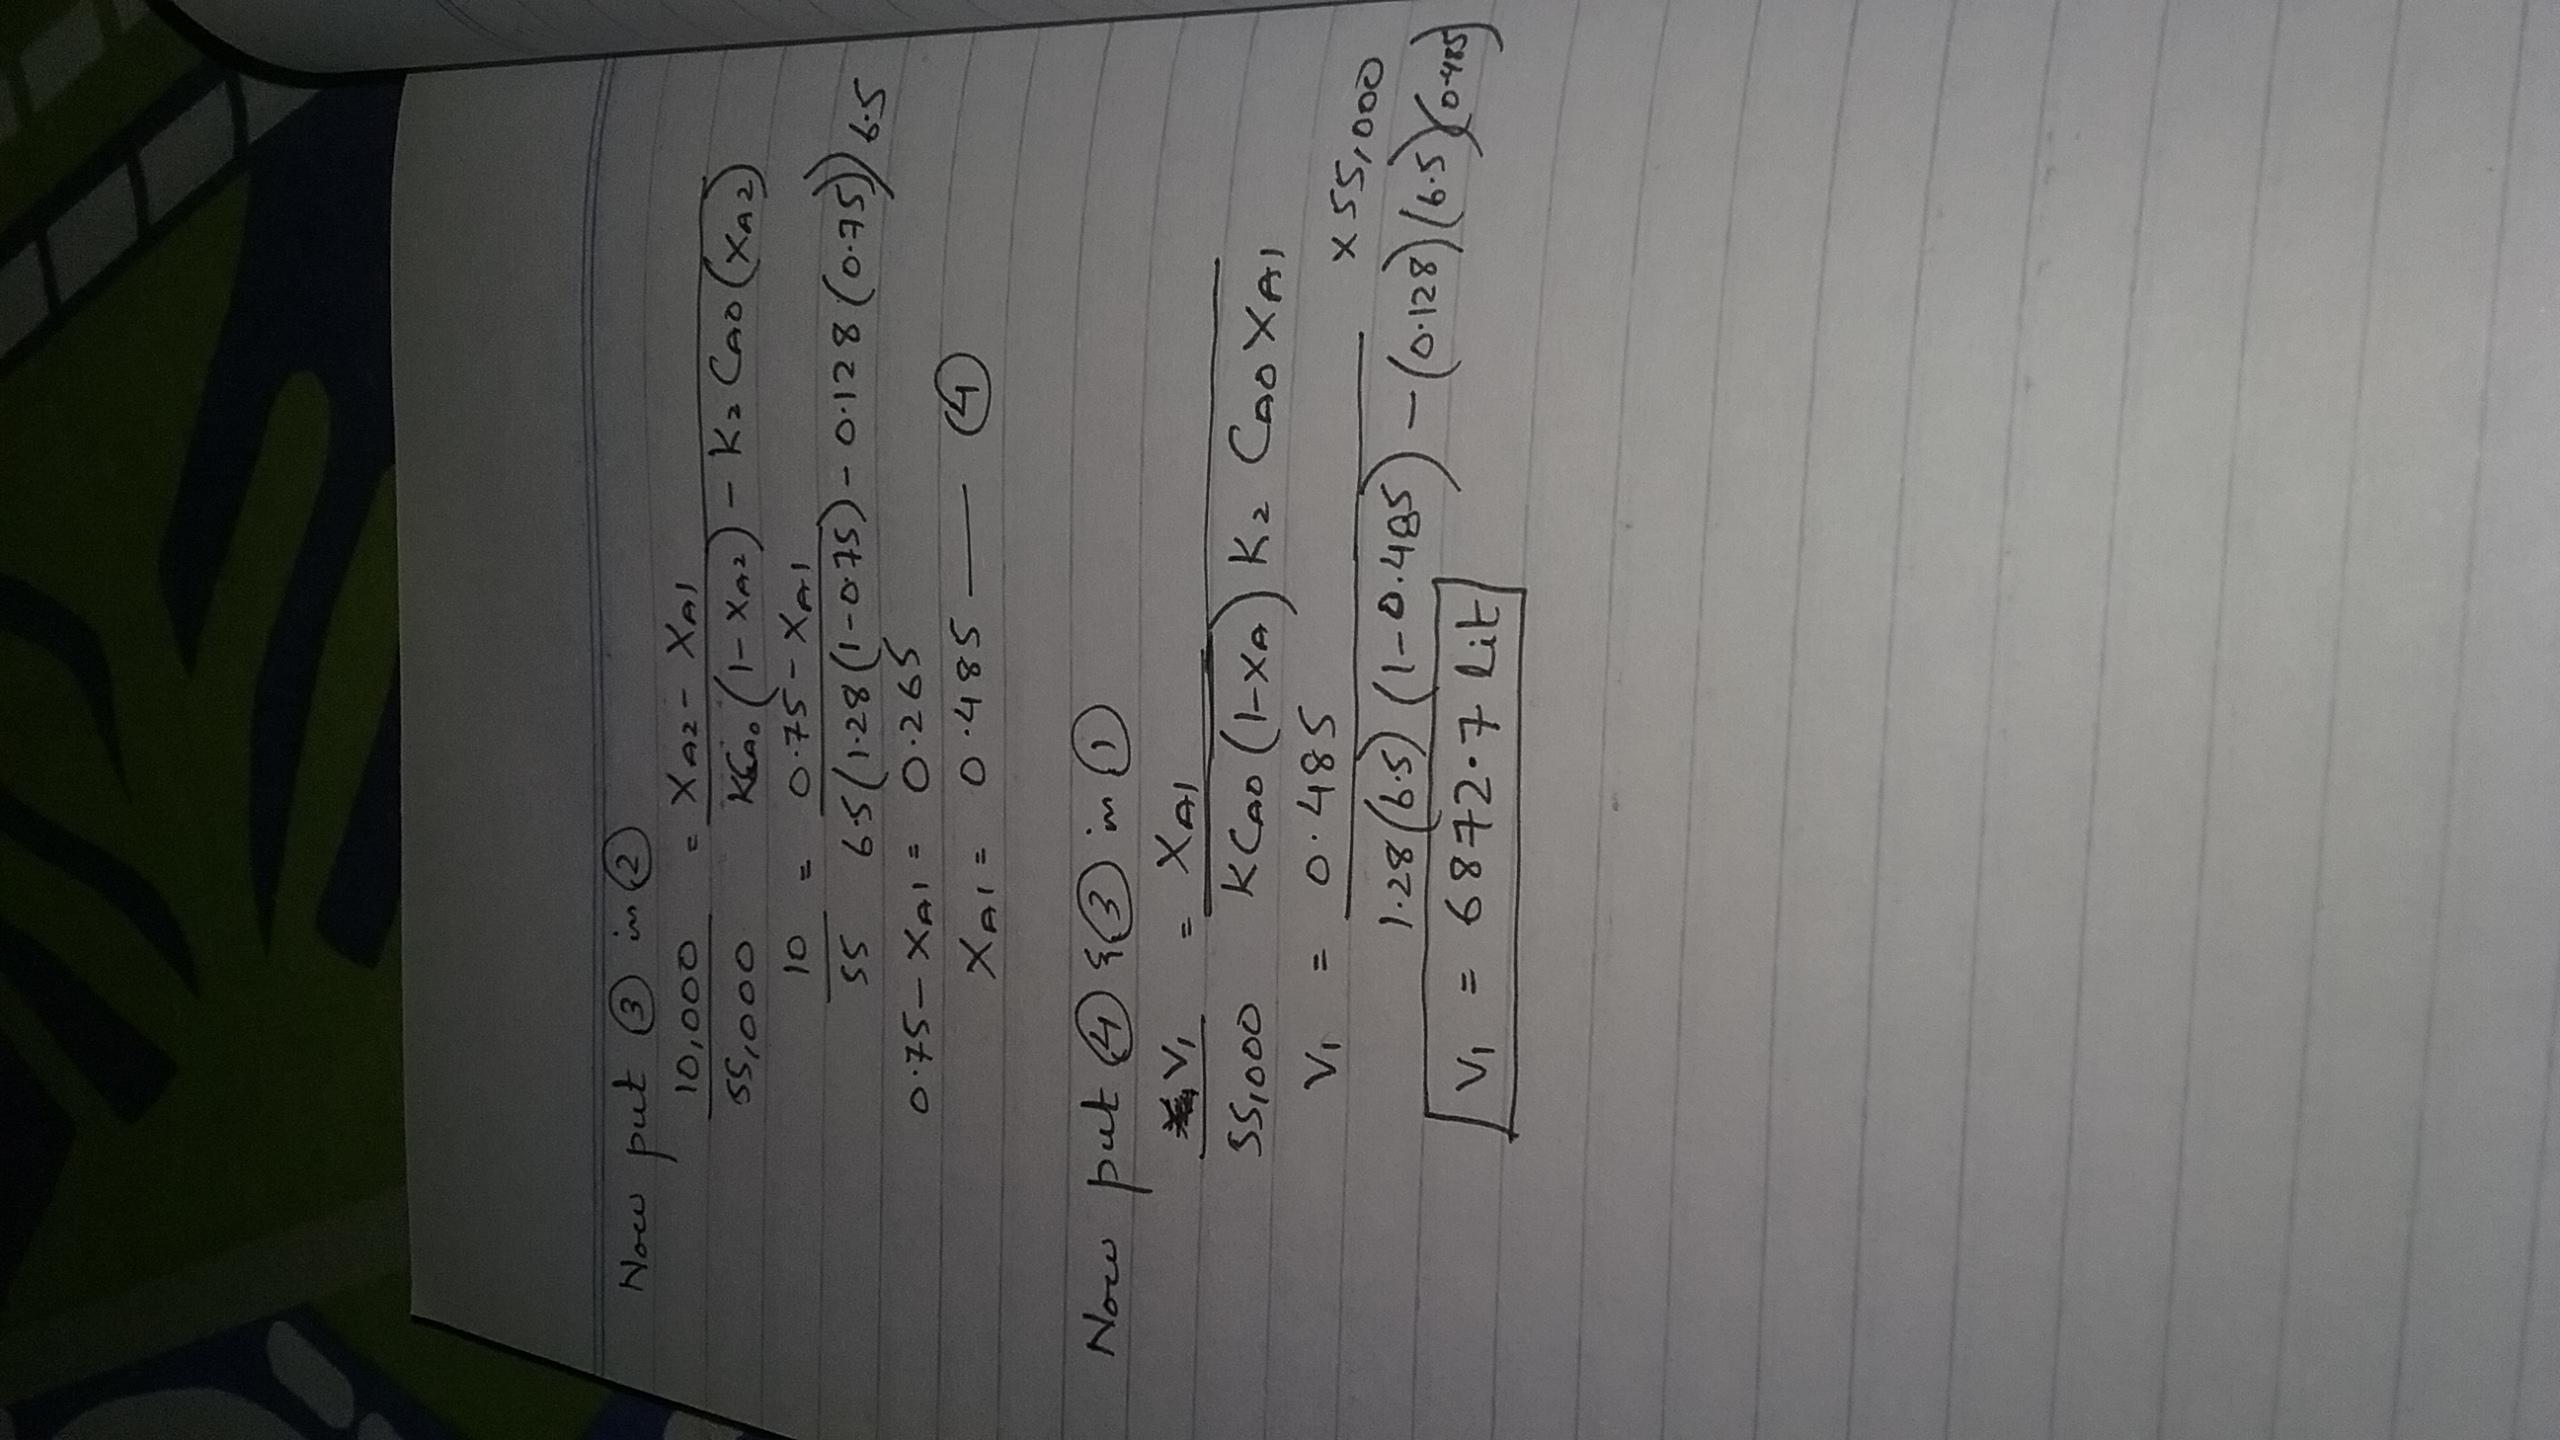 Now put ③ in ②
10,000 = XA2 - XA1
55,000 KCA0 (1-XA2) - K2 CA0 (XA2)
10 = 0.75 - XA1
55 6.5(1.28(1-0.75) - 0.128(0.75)) 6.5
0.75 - XA1 = 0.265
XA1 = 0.485 — ④
Now put ④ & ③ in ①
V1 = XA1
55,000 KCA0 (1-XA) K2 CA0 XA1
V1 = 0.485 × 55,000
1.28(6.5)(1-0.485) - (0.128)(6.5)(0.485)
V1 = 6872.7 Lit